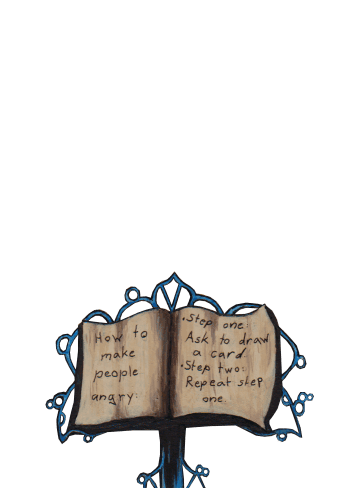 How to
make
people
angry:
·Step one:
Ask to draw
a card
·Step two:
Repeat step
one.